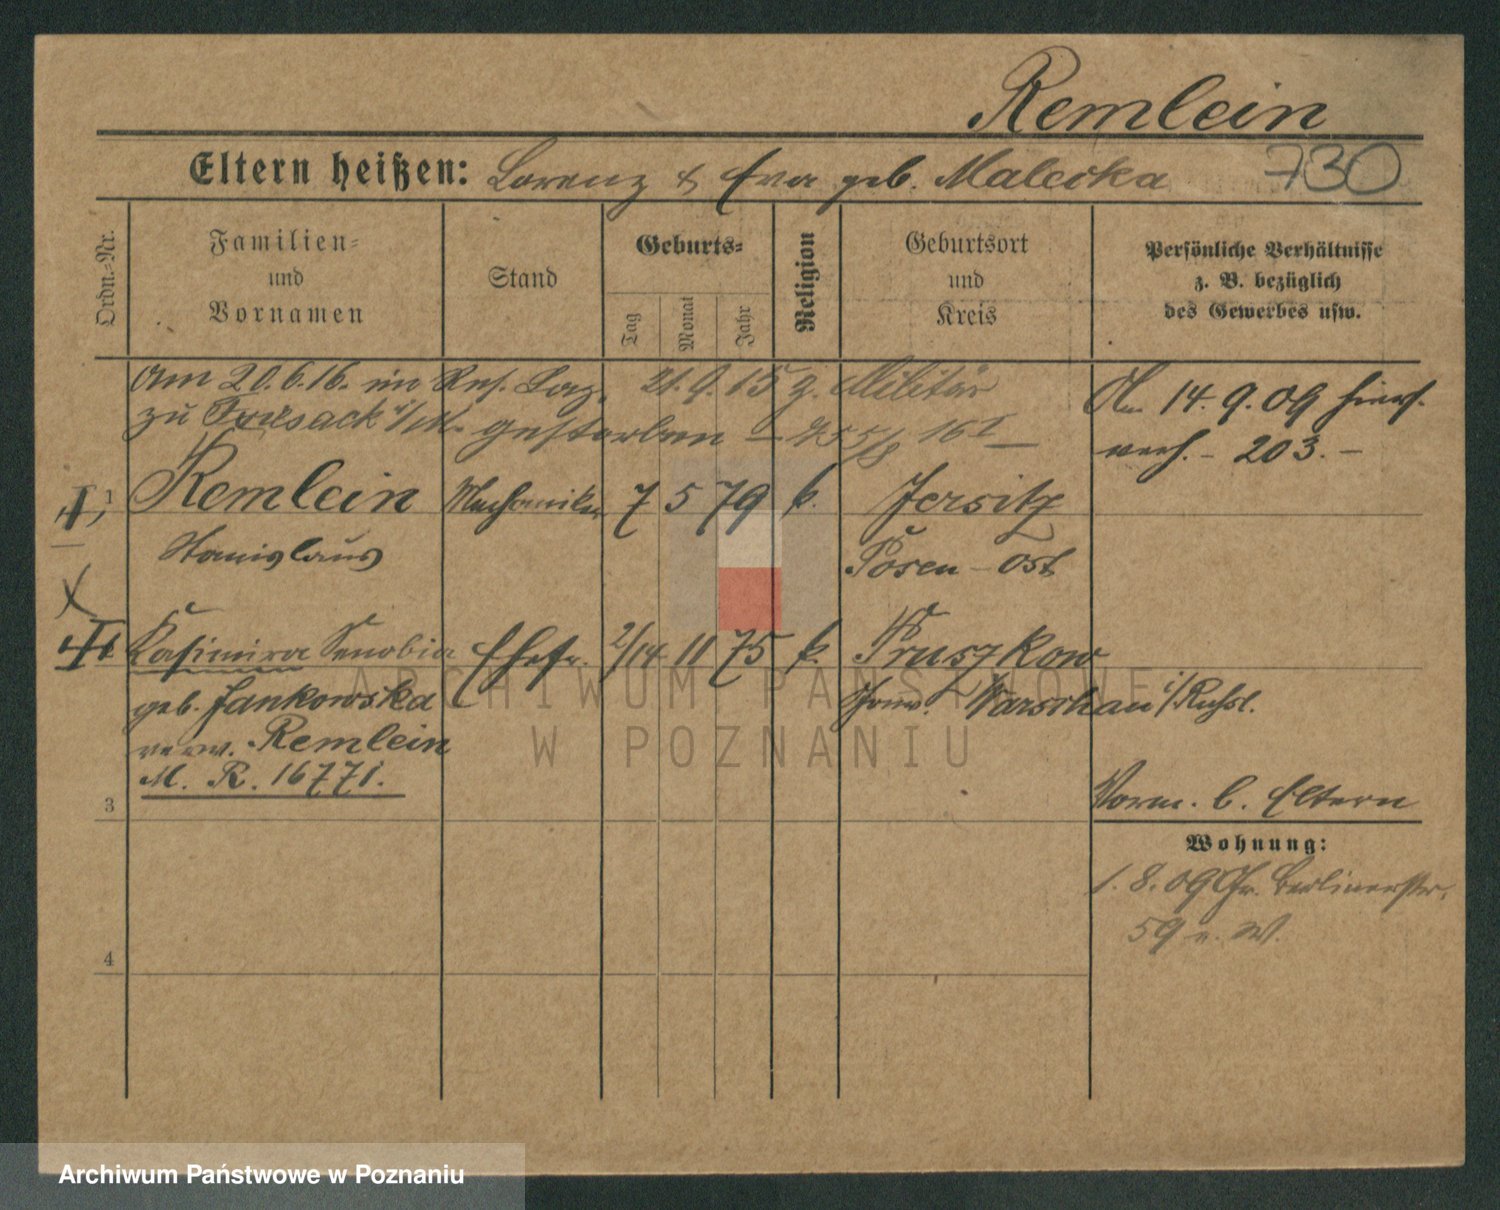 Remlein
730
Eltern heißen: Lorenz & Eva geb. Malecka
Ordn.-Nr.
Familien-
und
Vornamen
Stand
Geburts-
Tag
Monat
Jahr
Religion
Geburtsort
und
Kreis
Persönliche Verhältnisse
z. B. bezüglich
des Gewerbes usw.
Am 20.6.16. im Res. Laz. 21.9.15 z. Militär
zu gestorben
Am 14.9.09 hiers.
verh. - 203. -
1 Remlein Mechaniker 7 5 79 k. Jersitz
Stanislaus Posen - Ost
Kasimira Zenobia Ehefr. 2/14 11 75 k. Pruszkow
geb. Jankowska Warschau i/Rußl.
verw. Remlein
M. R. 16771.
3
Vorm. b. Eltern
Wohnung:
1.8.09 Gr. Berlinerstr.
59 W.
4
ARCHIWUM PAŃSTWOWE
W POZNANIU
Archiwum Państwowe w Poznaniu